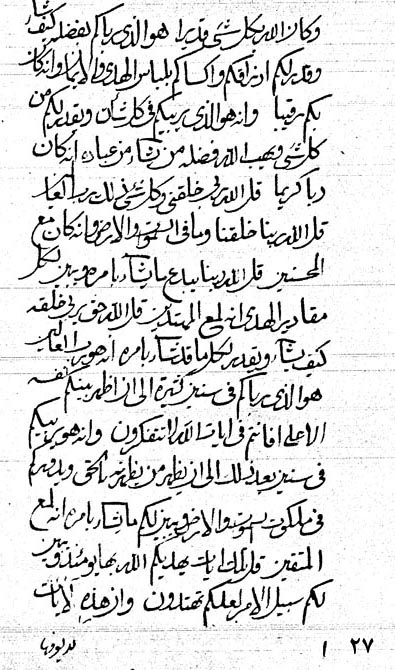 وكان الله بكل شیء قديرا هو الذی رباكم بفضله كيف شاء
وقدر لكم ارزاقكم واكساكم بلباس الهدى والايمان وانه كان
بكم رقيبا وانه هو الذی يربيكم فی كل شان ويقدر لكم من
كل شیء ويهب الله فضله من يشاء من عباده انه كان
ربا كريما قل الله ربی خلقنی وكل شیء ذلك رب العالمين
قل الله ربنا خلقنا وما فی السموات والارض وانه كان مع
المحسنين قل الله ربنا يبدع ما يشاء بامره ويبين لكل
مقادير الهدى انه لمع المهتدين قل الله حق يربی خلقه
كيف يشاء ويقدر لكل ما قد شاء بامره انه هو رب العالمين
هو الذی رباكم فی سنين كثيرة الى ان اظهر بينكم نفسه
الاعلى افانتم فی ايات الله لا تتفكرون وانه هو يربيكم
فی سنين بعد ذلك الى ان يظهر من يظهرنه بالحق
فی ملكوت السموات والارض ويبين لكم ما يشاء بامره انه لمع
المتقين قل تلك ايات يهديكم الله بها يومئذ ويبين
لكم سبيل الامر لعلكم تهتدون وان هذه لايات
٢٧ ١